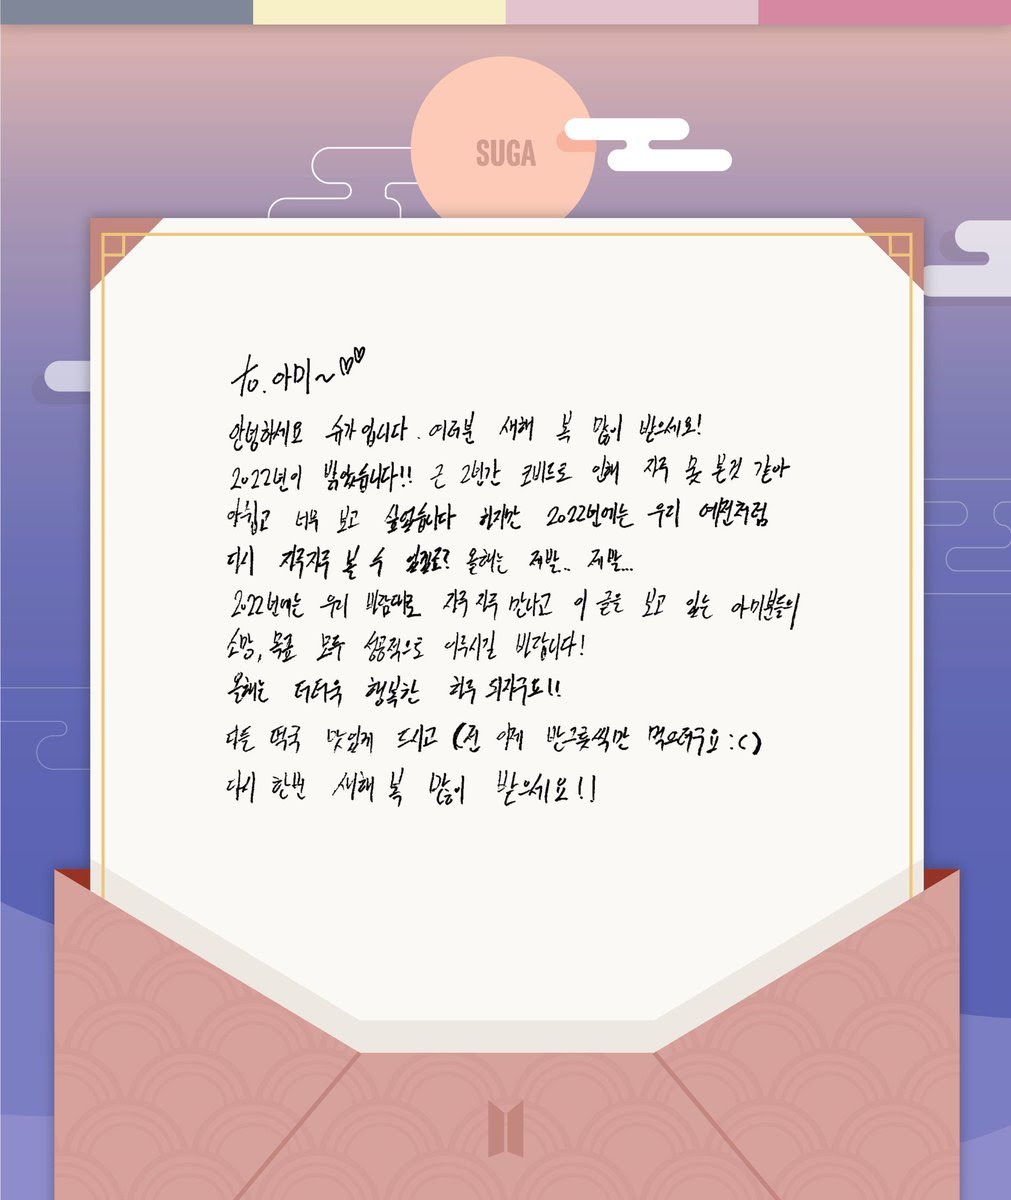 SUGA
to. 아미~♡♡
안녕하세요 슈가입니다. 여러분 새해 복 많이 받으세요!
2022년이 밝았습니다!! 근 2년간 코비드로 인해 자주 못 본것 같아
아쉽고 너무 보고 싶었습니다 하지만 2022년에는 우리 예전처럼
다시 자주자주 볼 수 있길로? 올해는 제발.. 제발...
2022년에는 우리 바람대로 자주 자주 만나고 이 글을 보고 있는 아미분들의
소망, 목표 모두 성공적으로 이루시길 바랍니다!
올해는 더더욱 행복한 하루 되자구요!!
다들 떡국 맛있게 드시고 (전 이제 반그릇씩만 먹으려구요 :()
다시 한번 새해 복 많이 받으세요!!